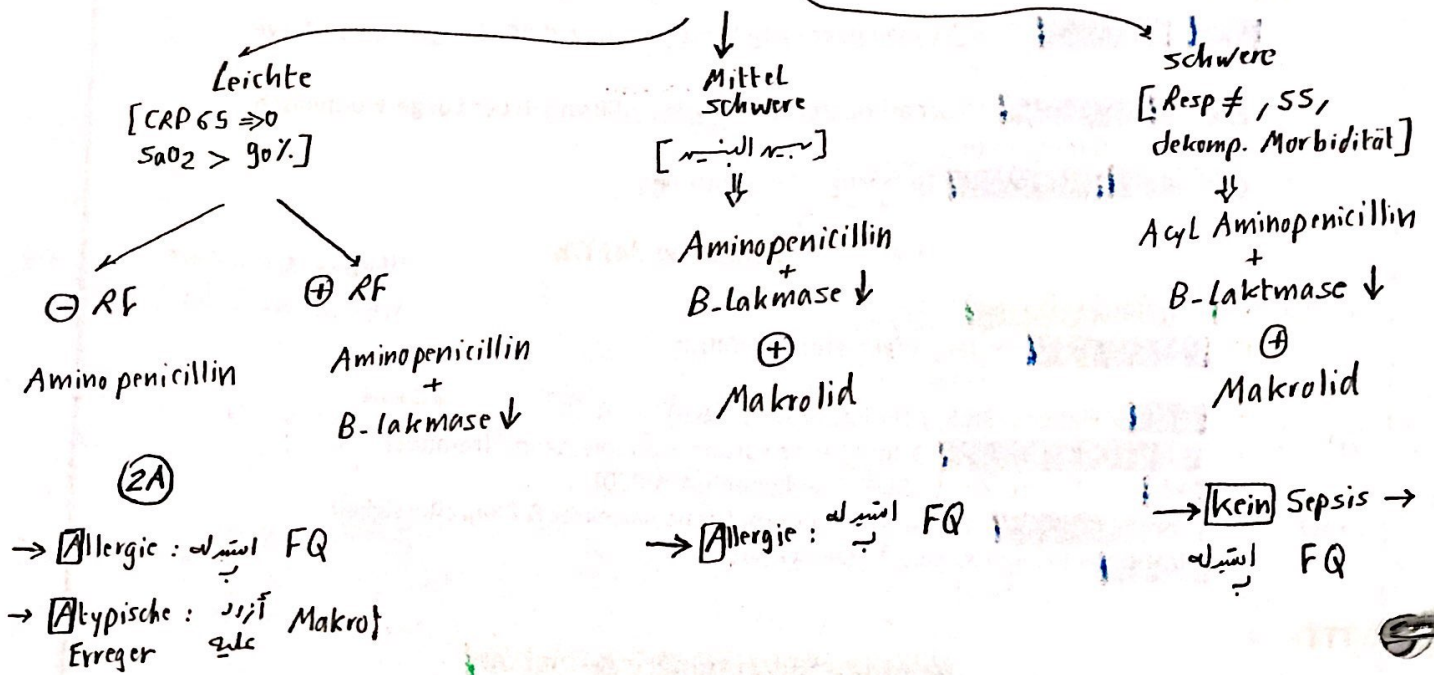 Leichte
[CRP 65 ⇒ 0
SaO2 > 90%.]
⊖ RF
Amino penicillin
⊕ RF
Aminopenicillin
+
B-lakmase ↓
(2A)
→ Allergie : استبدله ب FQ
→ Atypische : أزود عليه Makrol
Erreger
Mittel
schwere
[بين البنين]
⇓
Aminopenicillin
+
B-Lakmase ↓
⊕
Makrolid
→ Allergie : استبدله ب FQ
schwere
[Resp ≠, SS,
dekomp. Morbidität]
⇓
Acyl Aminopenicillin
+
B-Laktmase ↓
⊕
Makrolid
→ kein Sepsis →
استبدله ب FQ